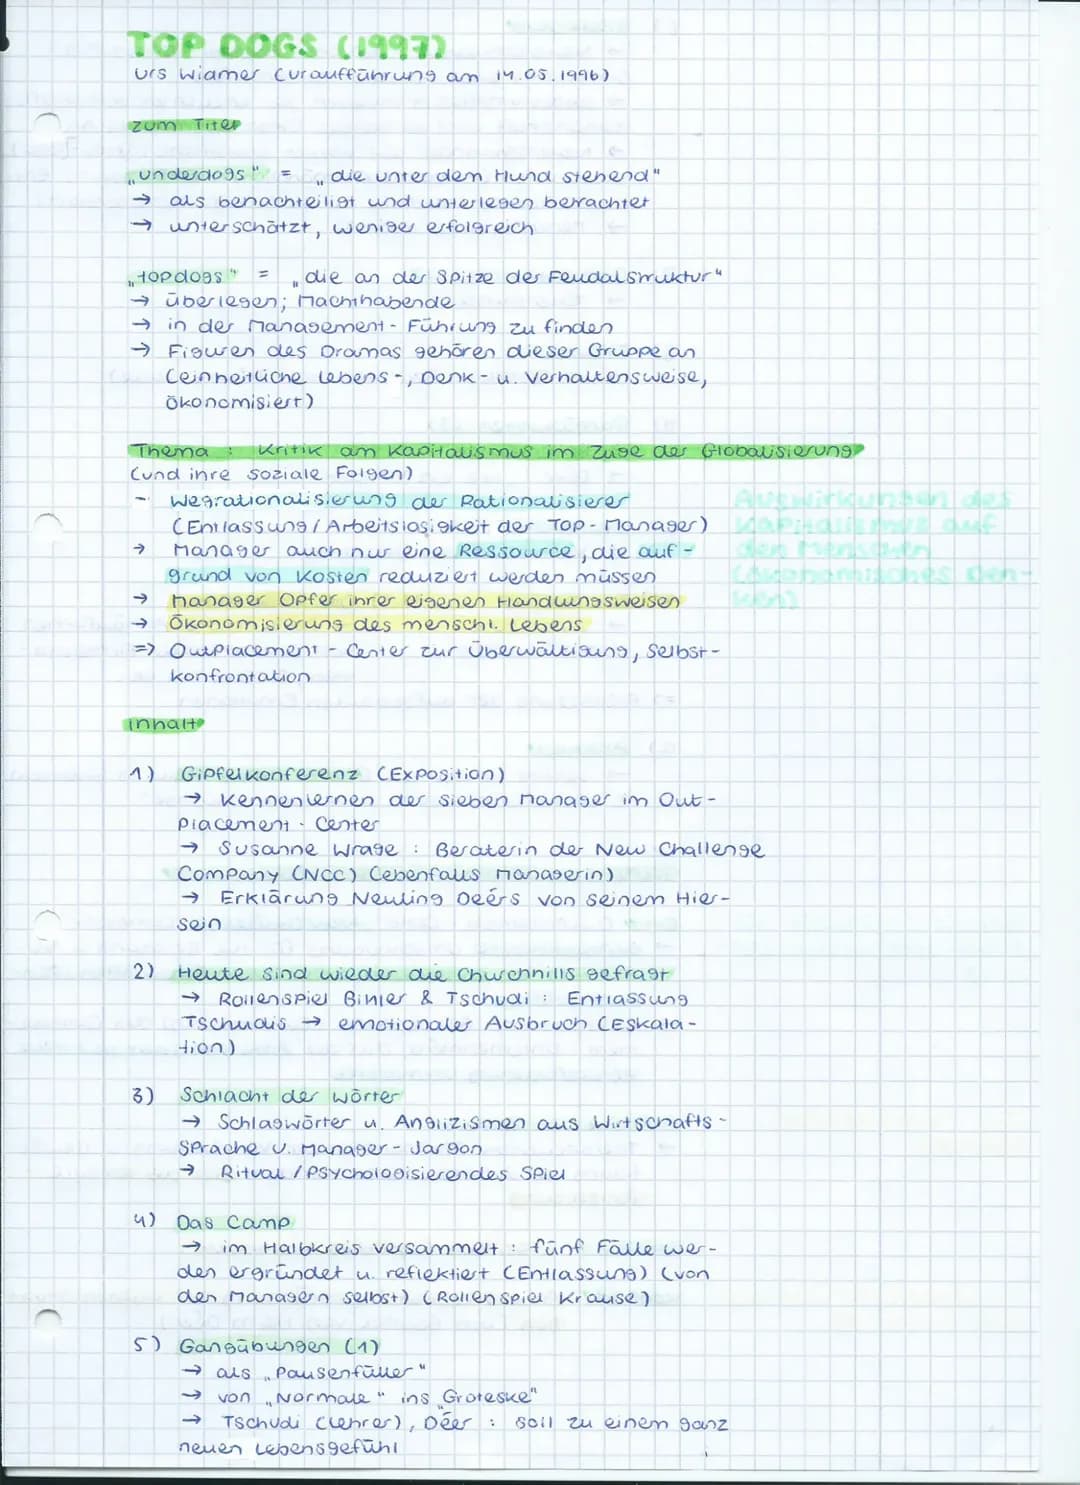 TOP DOGS (1997)
Urs Widmer (Uraufführung am 14.05.1996)
Zum Titel
„Underdogs" = „die unter dem Hund stehend"
→ als benachteiligt und unterlegen betrachtet
→ unterschätzt, weniger erfolgreich
„topdogs" = „die an der Spitze der Feudalstruktur"
→ überlegen; Machthabende
→ in der Management-Führung zu finden
→ Figuren des Dramas gehören dieser Gruppe an
(einheitliche Lebens-, Denk- u. Verhaltensweise,
ökonomisiert)
Thema : Kritik am Kapitalismus im Zuge der Globalisierung
(und ihre soziale Folgen)
- Wegrationalisierung der Rationalisierer
(Entlassung/Arbeitslosigkeit der Top-Manager)
→ Manager auch nur eine Ressource, die auf-
grund von Kosten reduziert werden müssen
→ Manager Opfer ihrer eigenen Handlungsweisen
→ Ökonomisierung des menschl. Lebens
=> Outplacement-Center zur Überwältigung, Selbst-
konfrontation
Auswirkungen des
Kapitalismus auf
den Menschen
(ökonomisches Den-
ken)
Inhalt
1) Gipfelkonferenz (Exposition)
→ Kennenlernen der sieben Manager im Out-
placement-Center
→ Susanne Wrage : Beraterin der New Challenge
Company (NCC) (ebenfalls Managerin)
→ Erklärung Neuling Deérs von seinem Hier-
sein
2) Heute sind wieder die Churchnills gefragt
→ Rollenspiel Bihler & Tschudi : Entlassung
Tschudis → emotionaler Ausbruch (Eskala-
tion)
3) Schlacht der Wörter
→ Schlagwörter u. Anglizismen aus Wirtschafts-
sprache u. Manager-Jargon
→ Ritual/Psychologisierendes Spiel
4) Das Camp
→ im Halbkreis versammelt : fünf Fälle wer-
den ergründet u. reflektiert (Entlassung) (von
den Managern selbst) (Rollenspiel Krause)
5) Gangübungen (1)
→ als „Pausenfüller"
→ von „Normale" ins „Groteske"
→ Tschudi (Lehrer), Déer : soll zu einem ganz
neuen Lebensgefühl